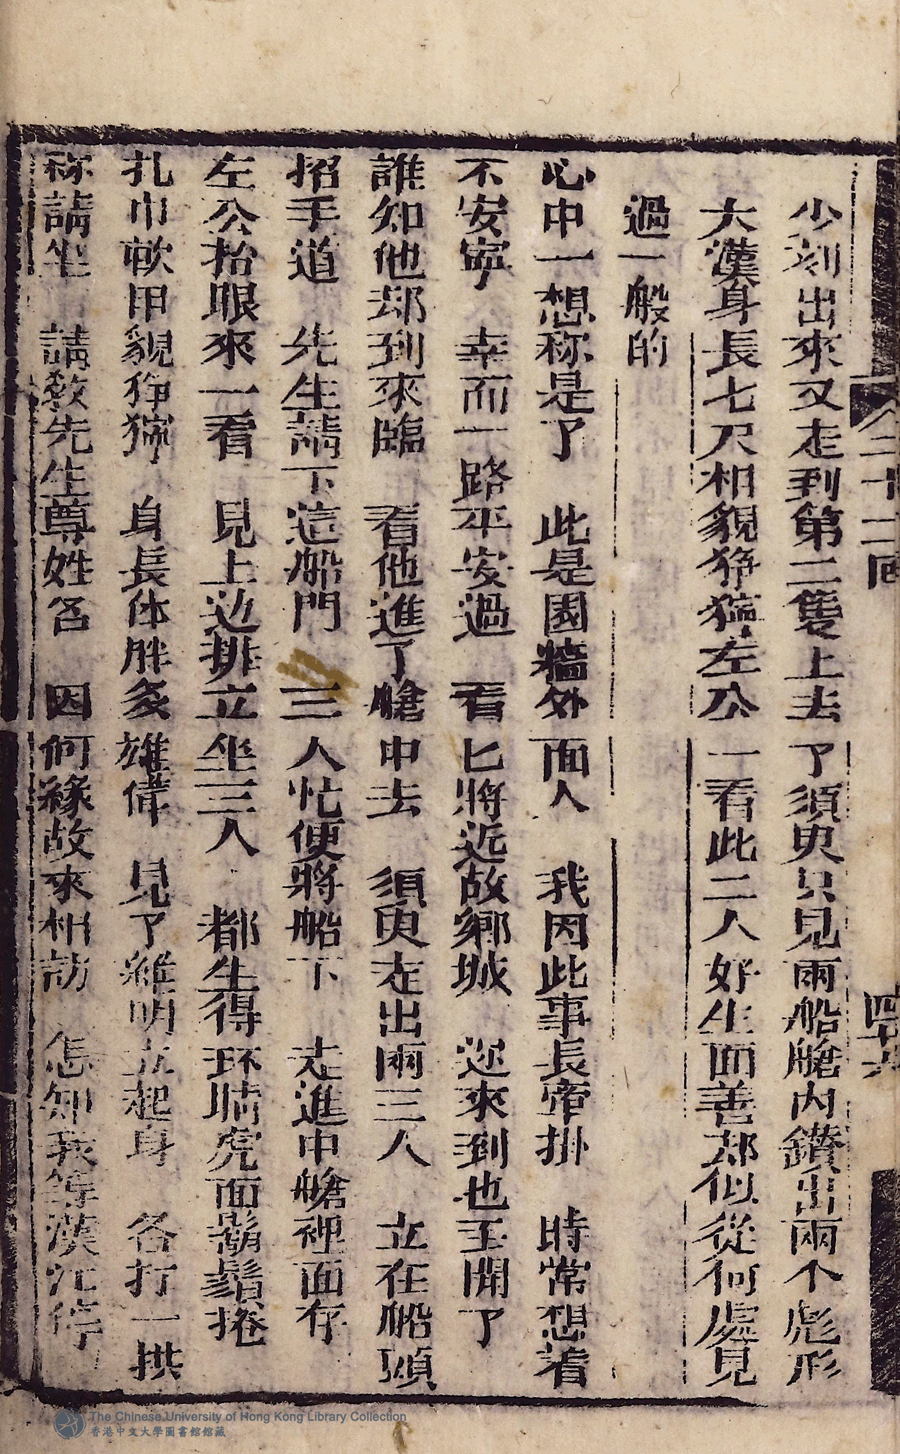 二十二回 四十六
少刻出來又走到第二隻上去了須臾只見兩船艙內鑽出兩个彪形
大漢身長七尺相貌猙獰左公一看此二人好生面善却似從何處見
過一般的
心中一想称是了 此是國墻外面人 我因此事長帝掛 時常想着
不安寧 幸而一路平安過 看匕將近故鄉城 迩來到也王開了
誰知他却到來臨 看他進了艙中去 須臾走出兩三人 立在船頭
招手道 先生請下這船門 三人忙便將船下 走進中艙裡面存
左公抬眼來一看 見上边排立坐三人 都生得环睛虎面鬍鬚捲
扎巾軟甲貌猙獰 身長体胖多雄偉 見了維明立起身 各打一拱
称請坐 請教先生尊姓名 因何緣故來相訪 怎知我等漢江停
The Chinese University of Hong Kong Library Collection
香港中文大學圖書館館藏